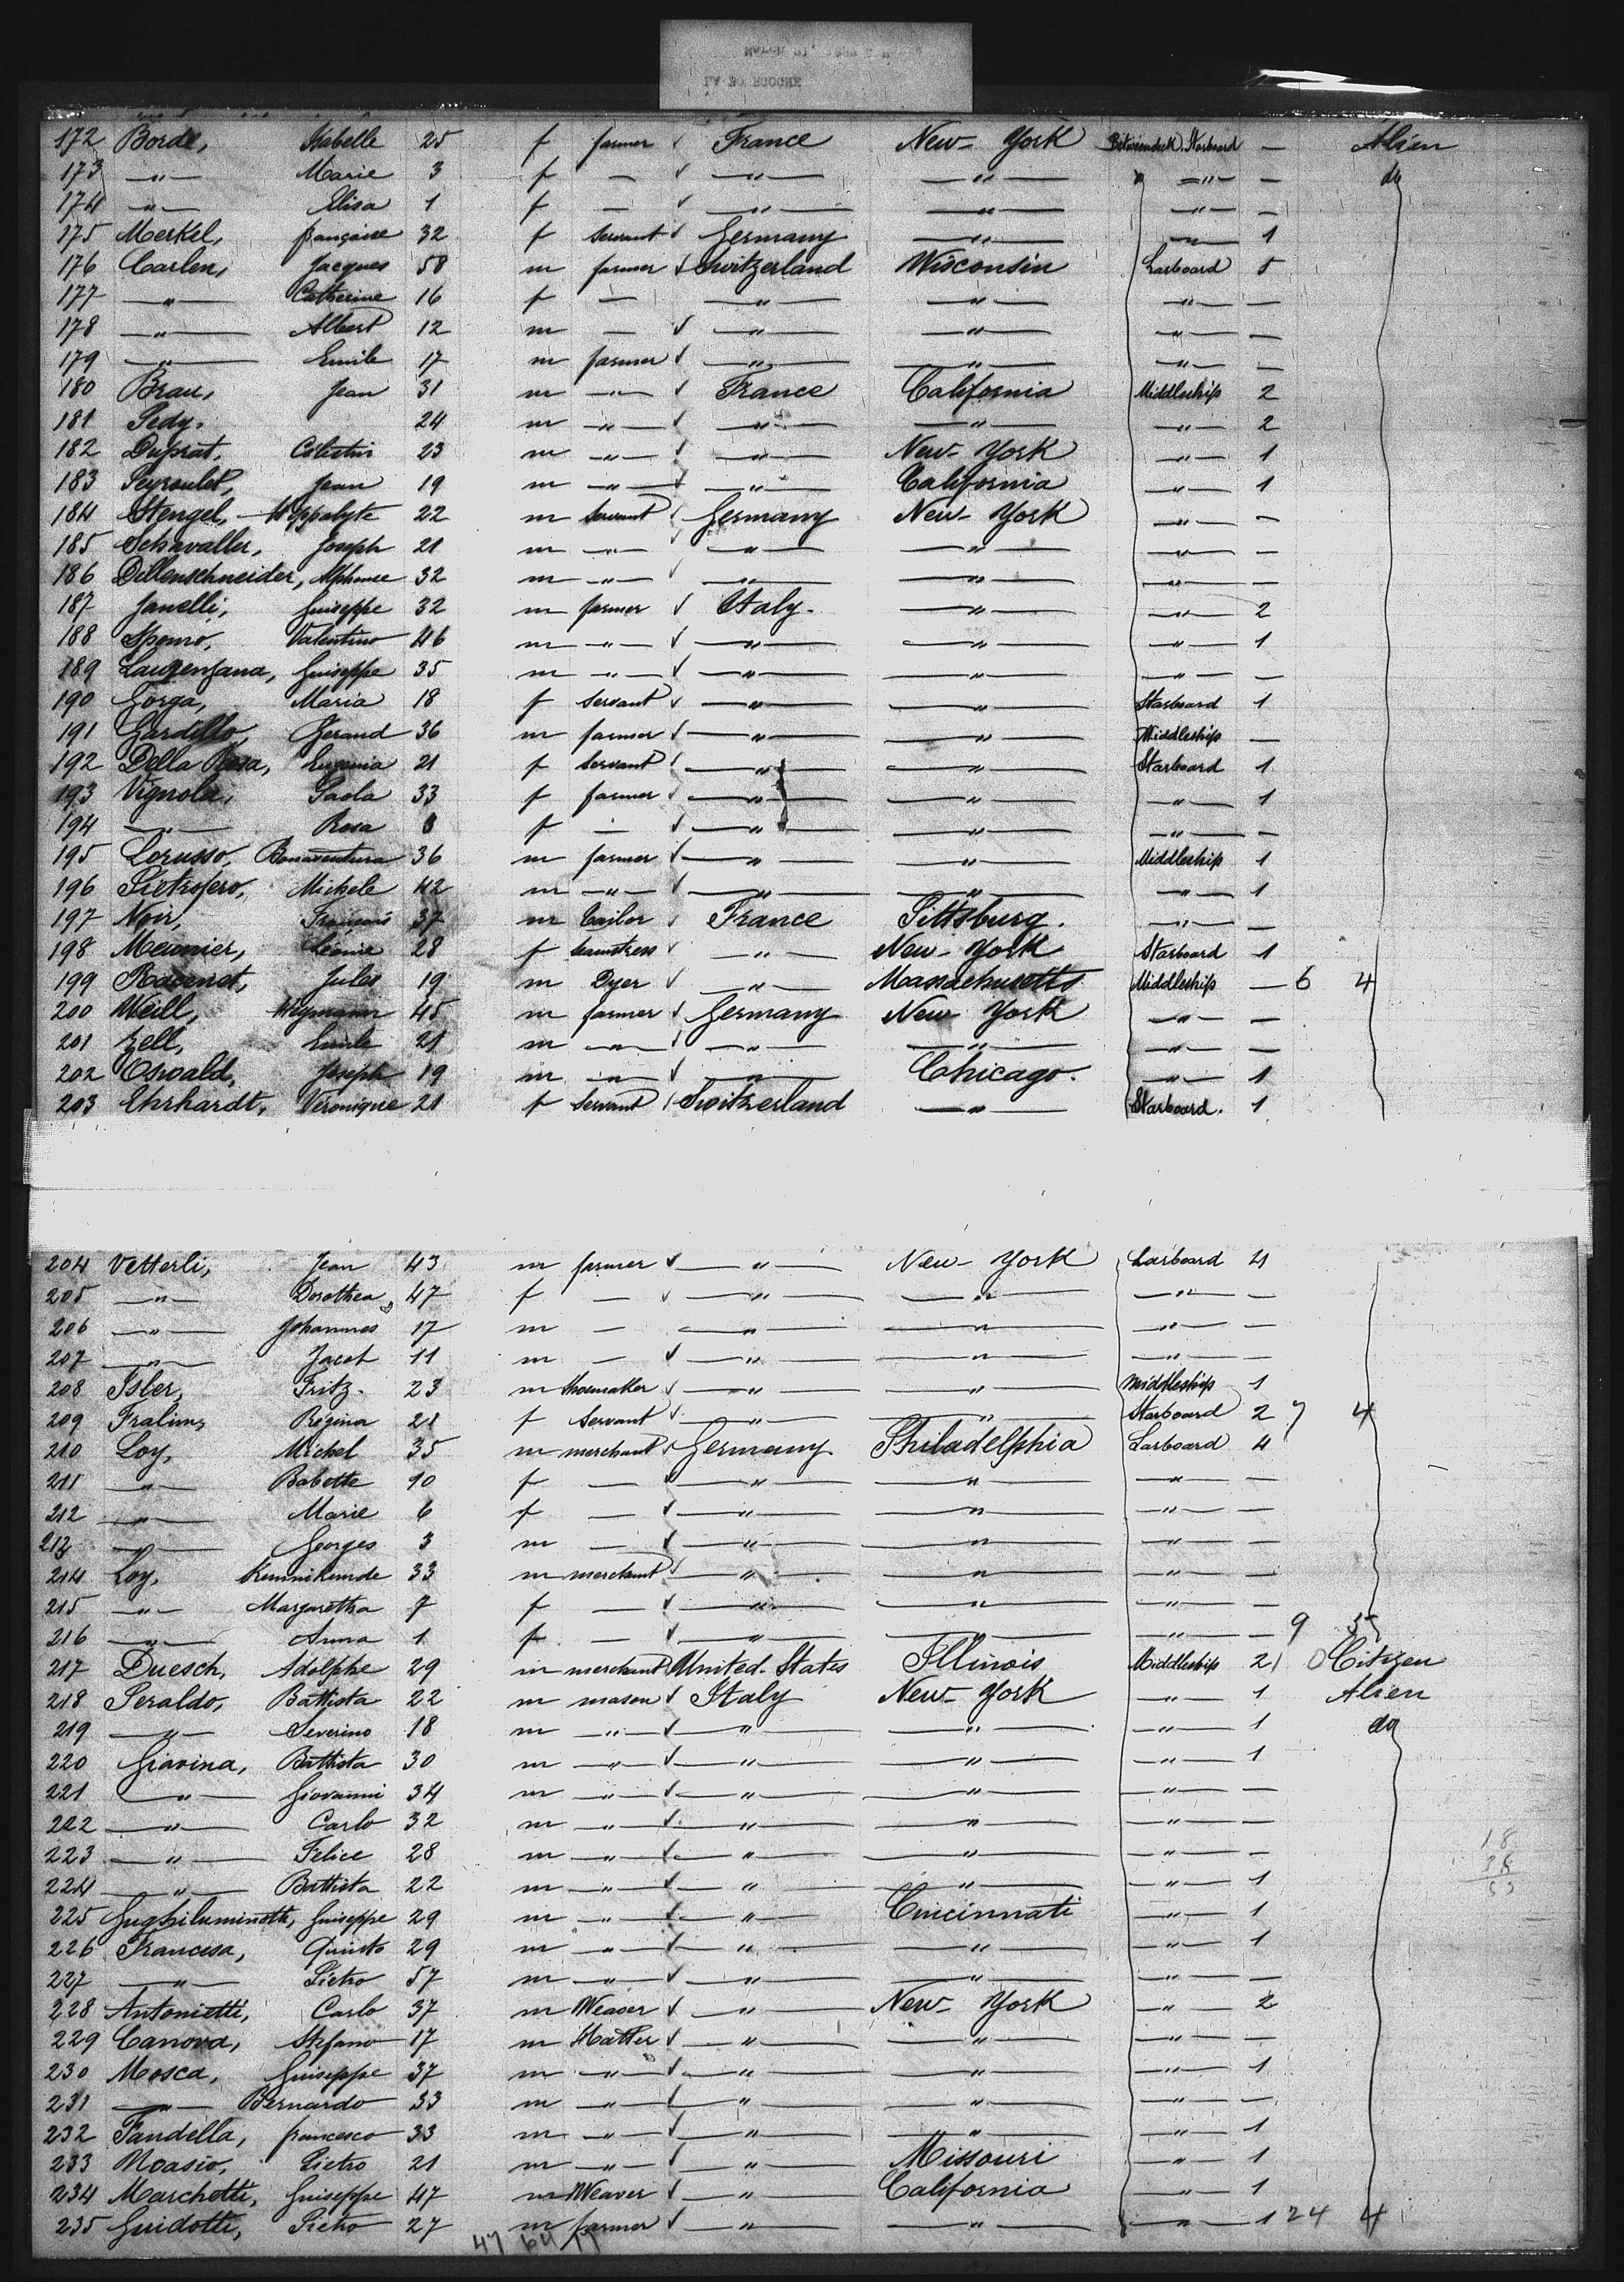 172 Borde, Isabelle 25 f farmer France New-York Betweendeck Starboard — Alien
173 —"— Marie 3 f — —"— —"— —"— — do
174 —"— Elisa 1 f — —"— —"— —"— —
175 Merkel, françoise 32 f servant Germany —"— —"— 1
176 Carlen, Jacques 58 m farmer Switzerland Wisconsin Larboard 5
177 —"— Catherine 16 f — —"— —"— —"— —
178 —"— Albert 12 m — —"— —"— —"— —
179 —"— Emile 17 m farmer —"— —"— —"— —
180 Brau, Jean 31 m —"— France California Middleship 2
181 Pedy. 24 m —"— —"— —"— —"— 2
182 Duprat, Célestin 23 m —"— —"— New-York —"— 1
183 Peyroulet, Jean 19 m —"— —"— California —"— 1
184 Stengel, Hyppolyte 22 m servant Germany New-York —"— —
185 Schavaller, Joseph 21 m —"— —"— —"— —"— —
186 Dillenschneider, Alphonse 32 m —"— —"— —"— —"— —
187 Janelli, Guiseppe 32 m farmer Italy. —"— —"— 2
188 Spomo, Valentino 46 m —"— —"— —"— —"— 1
189 Laugengana, Guiseppe 35 m —"— —"— —"— —"— —
190 Gorga, Maria 18 f servant —"— —"— Starboard 1
191 Gardillo, Gerand 36 m farmer —"— —"— Middleship —
192 Della Rosa, Eugenia 21 f servant —"— —"— Starboard 1
193 Vignola, Paola 33 f farmer —"— —"— —"— 1
194 —"— Rosa f — —"— —"— —"— —
195 Lorusso, Bonaventura 36 m farmer —"— —"— Middleship 1
196 Pietrofero, Michele 42 m —"— —"— —"— —"— 1
197 Noir, François 37 m Tailor France Pittsburg. —"— —
198 Meunier, Léonie 28 f seamstress —"— New-York Starboard 1
199 Jules 19 m Dyer —"— Massachusetts Middleship — 6 4
200 Weill, Heymann 45 m farmer Germany New York —"— —
201 Zell, Emile 21 m —"— —"— —"— —"— —
202 Oswald, Joseph 19 m —"— —"— Chicago. —"— 1
203 Ehrhardt, Véronique 21 f servant Switzerland —"— Starboard. 1
204 Vetterli, Jean 43 m farmer —"— New-York Larboard 4
205 —"— Dorothea 47 f — —"— —"— —"— —
206 —"— Johannes 17 m — —"— —"— —"— —
207 —"— Jacob 11 m — —"— —"— —"— —
208 Isler, Fritz. 23 m shoemaker —"— —"— Middleship 1
209 Fralim, Régina 21 f servant —"— —"— Starboard 2 7 4
210 Loy, Michel 35 m merchant Germany Philadelphia Larboard 4
211 —"— Babette 10 f — —"— —"— —"— —
212 —"— Marie 6 f — —"— —"— —"— —
213 —"— Georges 3 m — —"— —"— —"— —
214 Loy, Kunnikunde 33 m merchant —"— —"— —"— —
215 —"— Margaretha 7 f — —"— —"— —"— —
216 —"— Anna 1 f — —"— —"— —"— — 9 5
217 Duesch, Adolphe 29 m merchant United-States Illinois Middleship 2 Citizen
218 Peraldo, Battista 22 m mason Italy New-York —"— 1 Alien
219 —"— Severino 18 m —"— —"— —"— —"— 1 do
220 Giavina, Battista 30 m —"— —"— —"— —"— 1
221 —"— Giovanni 34 m —"— —"— —"— —"— —
222 —"— Carlo 32 m —"— —"— —"— —"— —
223 —"— Felice 28 m —"— —"— —"— —"— —
224 —"— Battista 22 m —"— —"— —"— —"— 1
225 Gughiluminotti, Guiseppe 29 m —"— —"— Cincinnati —"— 1
226 Francesa, Quinto 29 m —"— —"— —"— —"— 1
227 —"— Pietro 57 m —"— —"— —"— —"— —
228 Antonietti, Carlo 37 m Weaver —"— New-York —"— 2
229 Canova, Stefano 17 m Hatter —"— —"— —"— —
230 Mosca, Guiseppe 37 m —"— —"— —"— —"— 1
231 —"— Bernardo 33 m —"— —"— —"— —"— —
232 Fandella, francesco 33 m —"— —"— —"— —"— 1
233 Moasio, Pietro 21 m —"— —"— Missouri —"— 1
234 Marchetti, Guiseppe 47 m Weaver —"— California —"— 1
235 Guidotti, Pietro 27 m farmer —"— —"— —"— 1 24 4
47 64 11